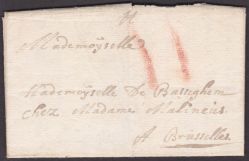 Mademoÿselle
Mademoÿselle De Basseghem
chez Madame Malineus
A Brusselles